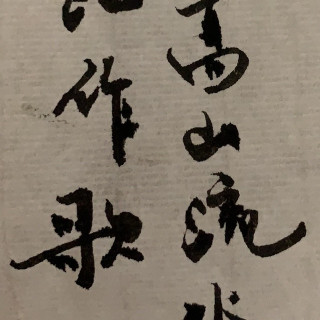 高山流水
作歌